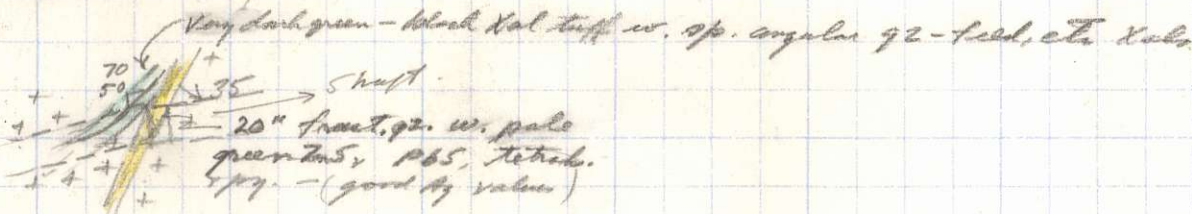 Very dark green - black Xal tuff w. sp. angular qz-feld, etc Xals
70
50
35
Shaft
20" fract. qz. w. pale
green ZnS, PbS, tetrah.
& py. - (good Ag values)